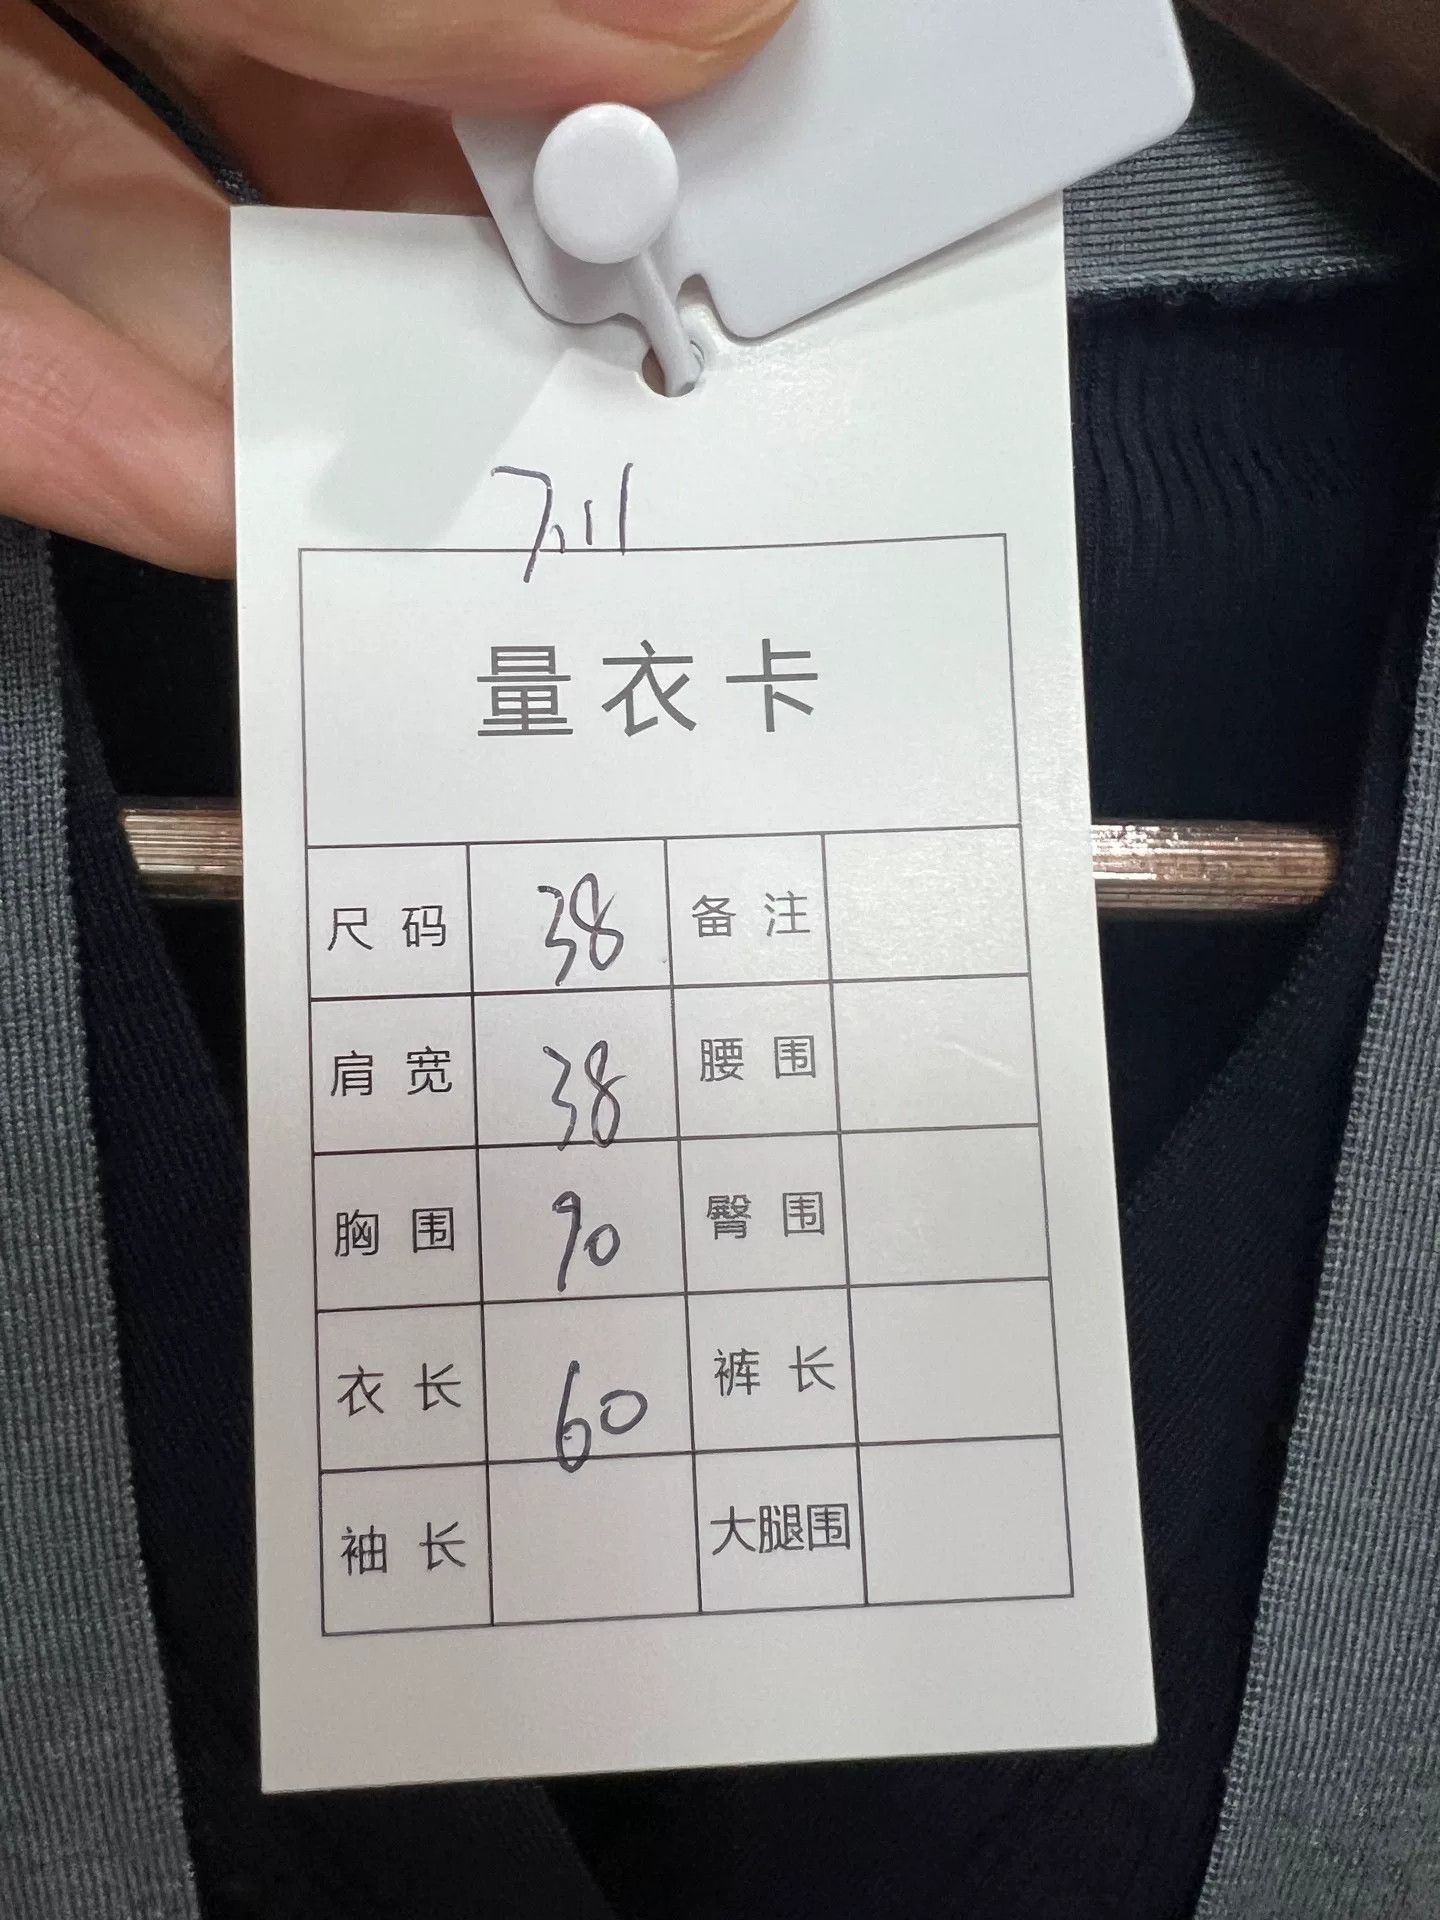 7.11
量衣卡
尺码 38 备注
肩宽 38 腰围
胸围 90 臀围
衣长 60 裤长
袖长 大腿围